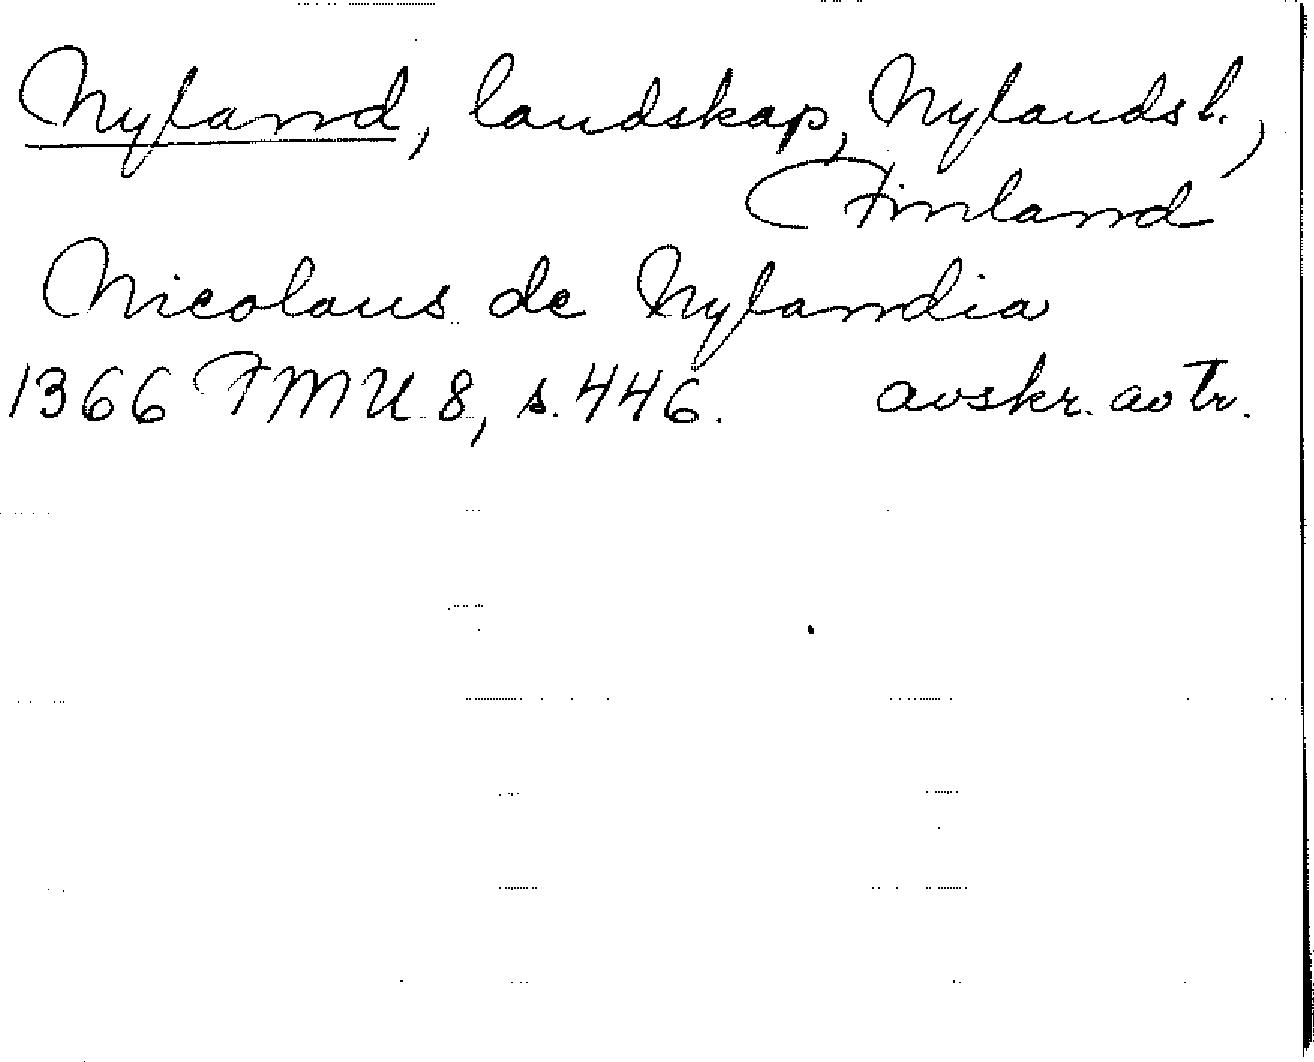 Nyland, landskap, Nylands l.,
Finland
Nicolaus de Nylandia
1366 FMU 8, s. 446. avskr. av tr.